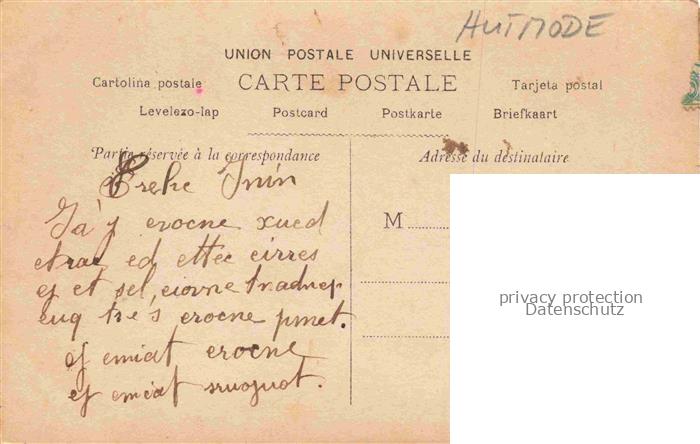 HUTMODE
UNION POSTALE UNIVERSELLE
Cartolina postale CARTE POSTALE Tarjeta postal
Levelezo-lap Postcard Postkarte Briefkaart
Partie réservée à la correspondance Adresse du destinataire
Erehc Inin
Ia'j erocne xued
etrac ed ettec eirres
ej et sel eiovne tnadnep
euq erocne pmet.
ej emiat erocne
ej emiat sruojuot.
M
privacy protection
Datenschutz